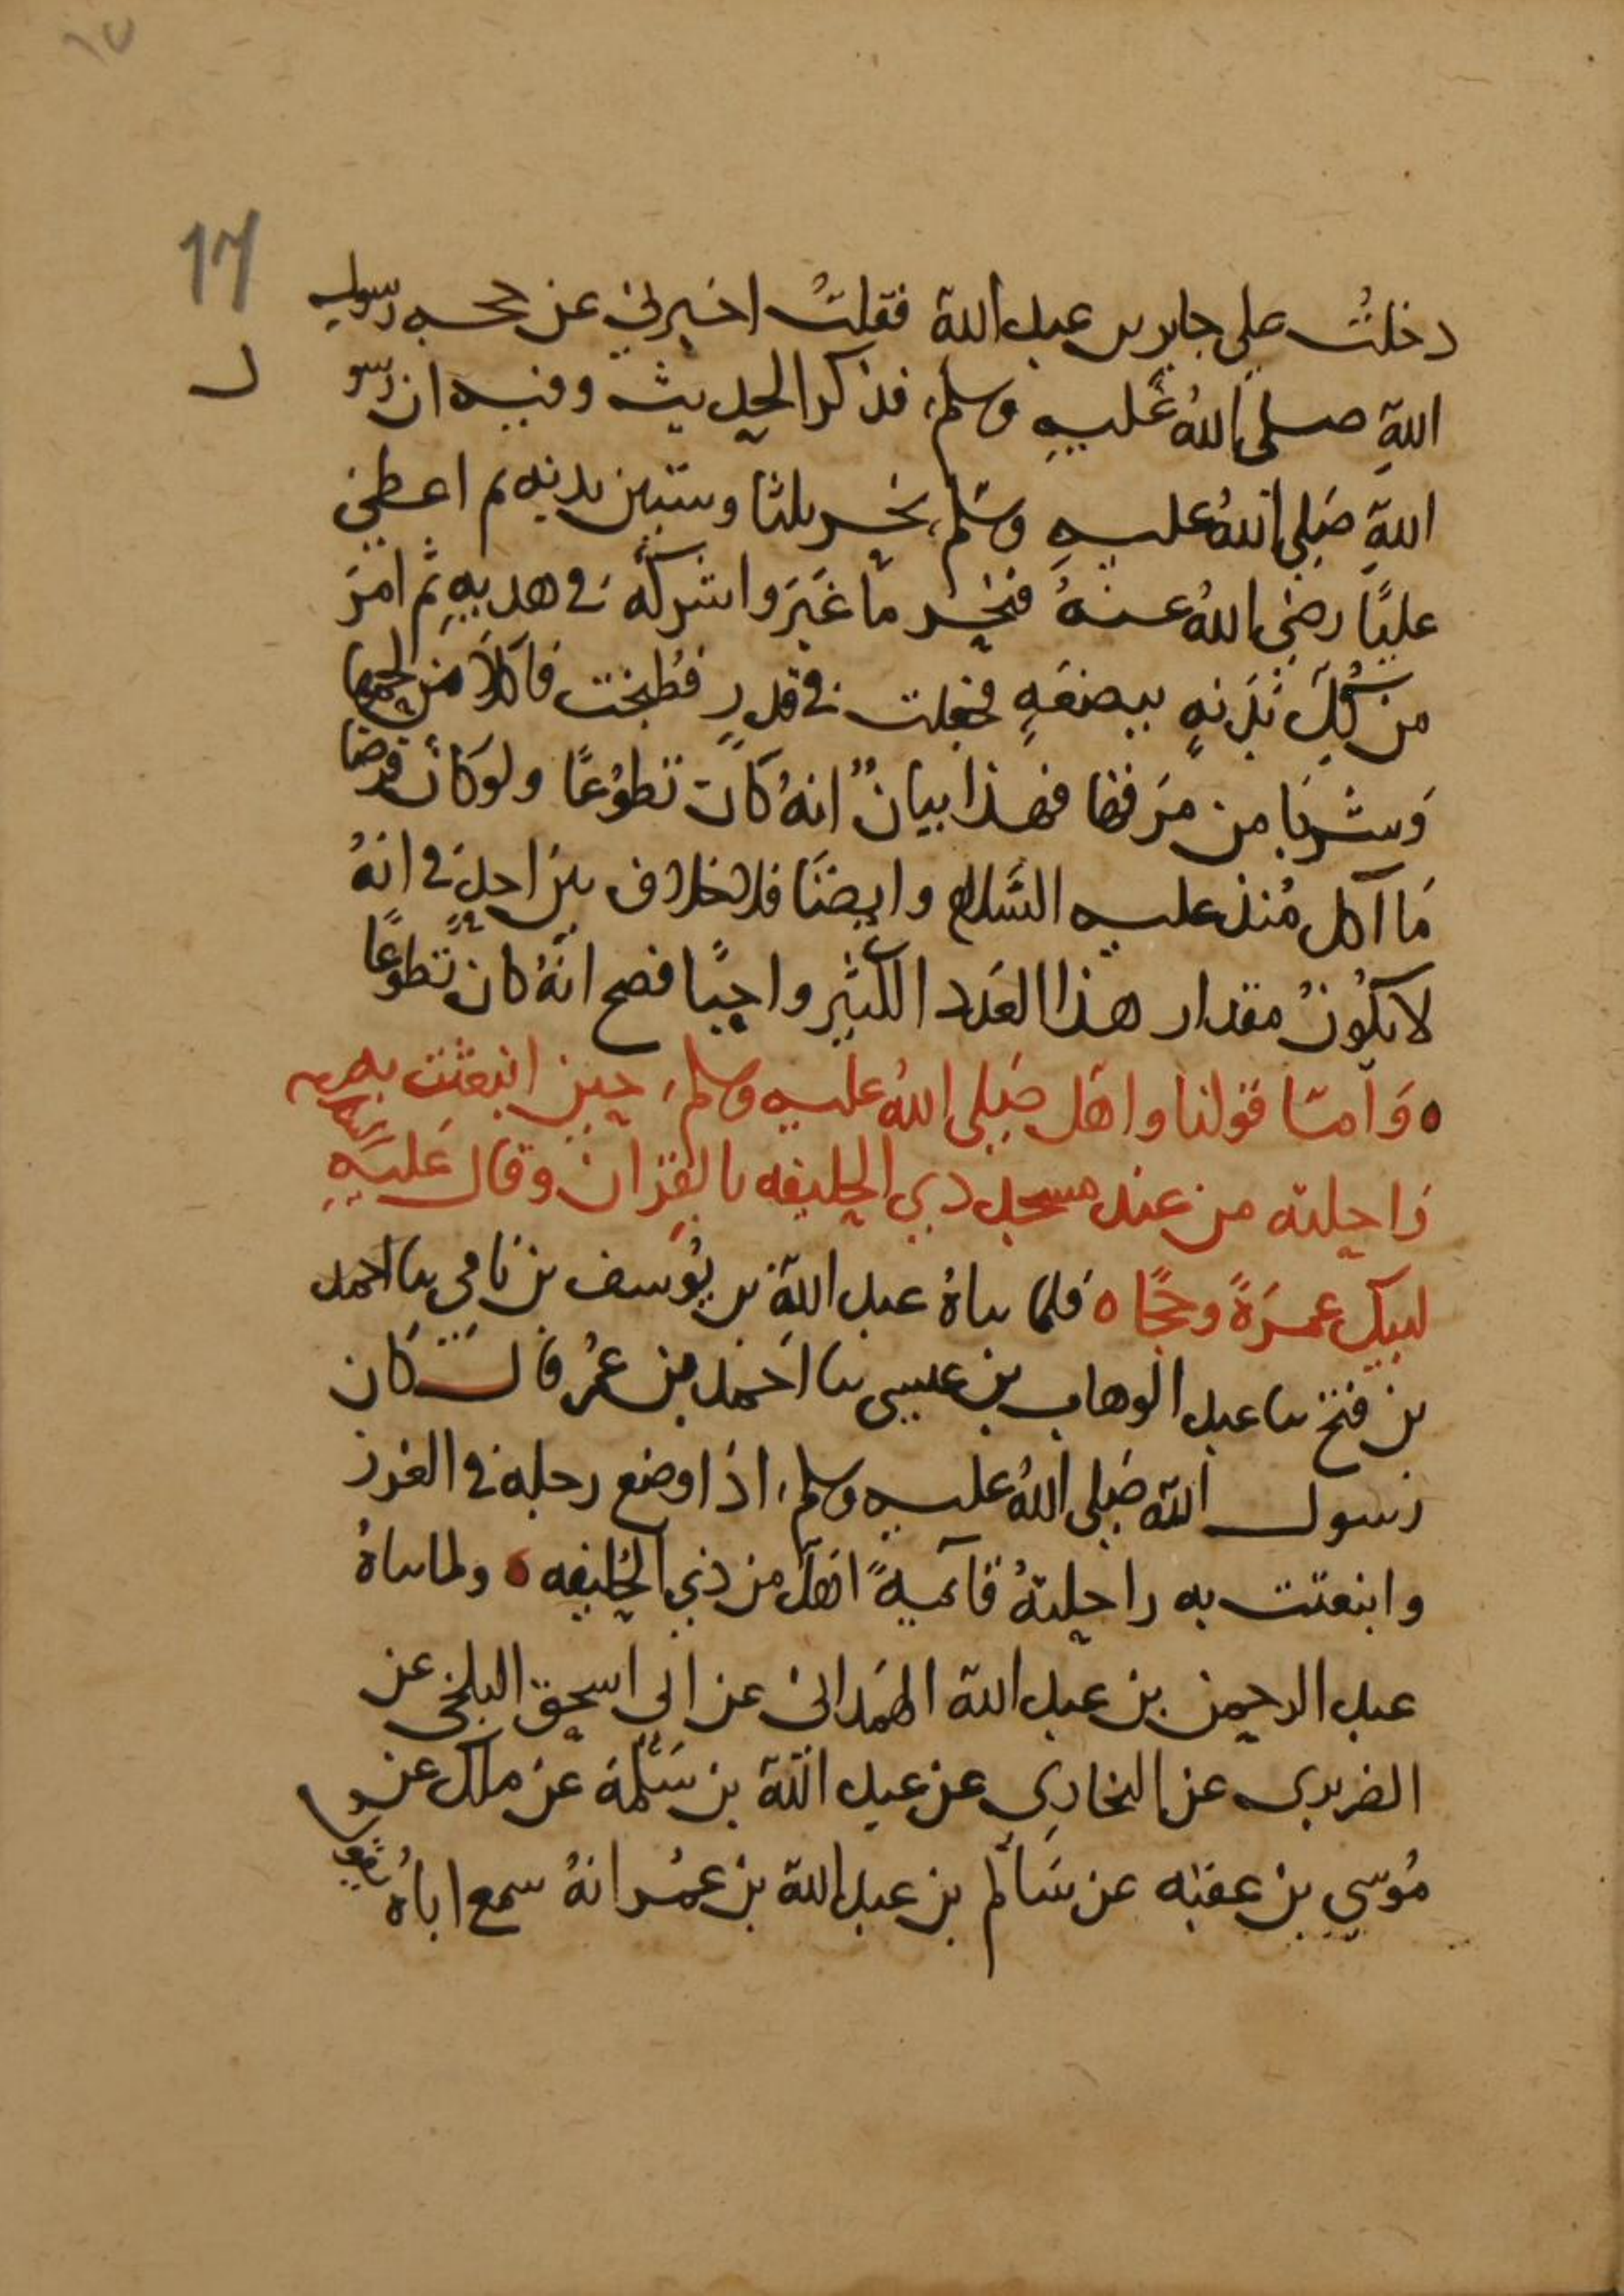 17
دخلتُ على جابر بن عبد الله فقلتُ اخبرني عن حجه رسول
الله صلى اللهُ عليهِ وسلم، فذكر الحديث وفيه ان رسو
ل
اللهِ صَلى اللهُ عليهِ وسَلم، نحر ثلثا وستين بدنه ثم اعطى
عليًا رضي اللهُ عنهُ فنحر ما غَبَرَ واشركَهُ في هديهِ ثم امَرَ
من كُلِّ بَدَنهٍ ببضعَهٍ فجعلت في قدرٍ فطُبخت فاكلا من لحمها
وَشربَا من مَرَقها فهذا بيانٌ انهُ كانَ تطوُعًا ولو كان فرضا
مَا اكل مُنذ عليه السَّلام وايضًا فلا خلاف بين احدٍ في انهُ
لا يكُونُ مقدار هذا العَدد الكثير واجبًا فصح انَّهُ كان تطوعًا
ه وَامّا قولنا واهَل صَلى اللهُ عليه وسلم، حين انبعثت به
رَاحلته من عند مسجد ذي الحليفه بالقِرَان وقال عَليهِ
لبيك عمرَةً وحجًا ه فلما ثناهُ عبد الله بن يُوسف بن نَامي ثنا احمد
بن فتح ثنا عبد الوهاب بن عيسى ثنا احَمد بن عمُر قال كان
رسول الله صَلى اللهُ عليه وسلم، اذا وضع رجله في الغرز
وانبعثت به راحلتهُ قائمهً اهلَّ من ذي الحُليفه ه ولما ثناهُ
عبد الرحمن بن عبد الله الهمَداني عن ابي اسحق البلخي عن
الفربري عن البخاري عن عبد الله بن مَسَلمَة عن ملك عن
مُوسى بن عقبه عن سَالم بن عبد الله بن عمُر انهُ سمع اباهُ يقول